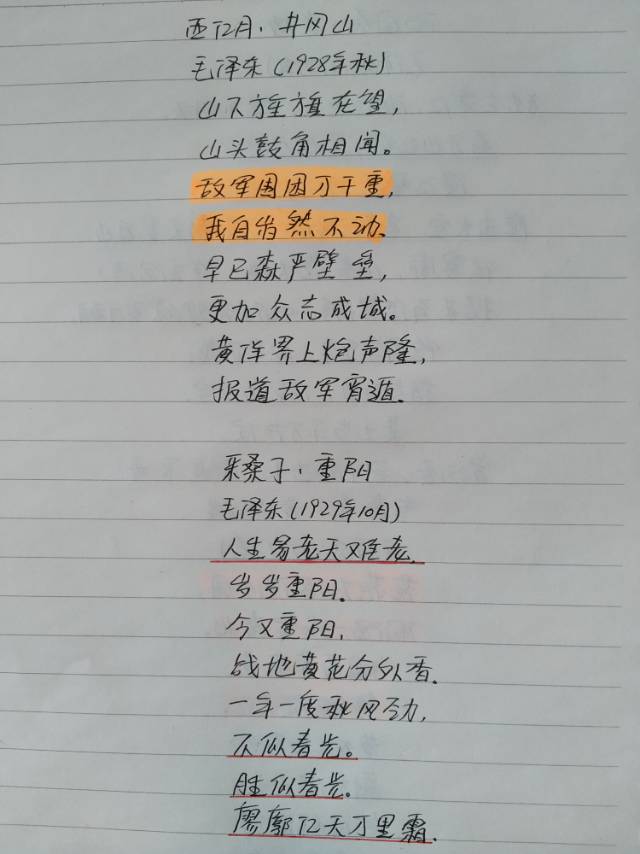 西江月·井冈山
毛泽东(1928年秋)
山下旌旗在望,
山头鼓角相闻。
敌军围困万千重,
我自岿然不动.
早已森严壁垒,
更加众志成城。
黄洋界上炮声隆,
报道敌军宵遁.
采桑子·重阳
毛泽东(1929年10月)
人生易老天难老,
岁岁重阳.
今又重阳,
战地黄花分外香.
一年一度秋风劲,
不似春光。
胜似春光。
廖廓江天万里霜.